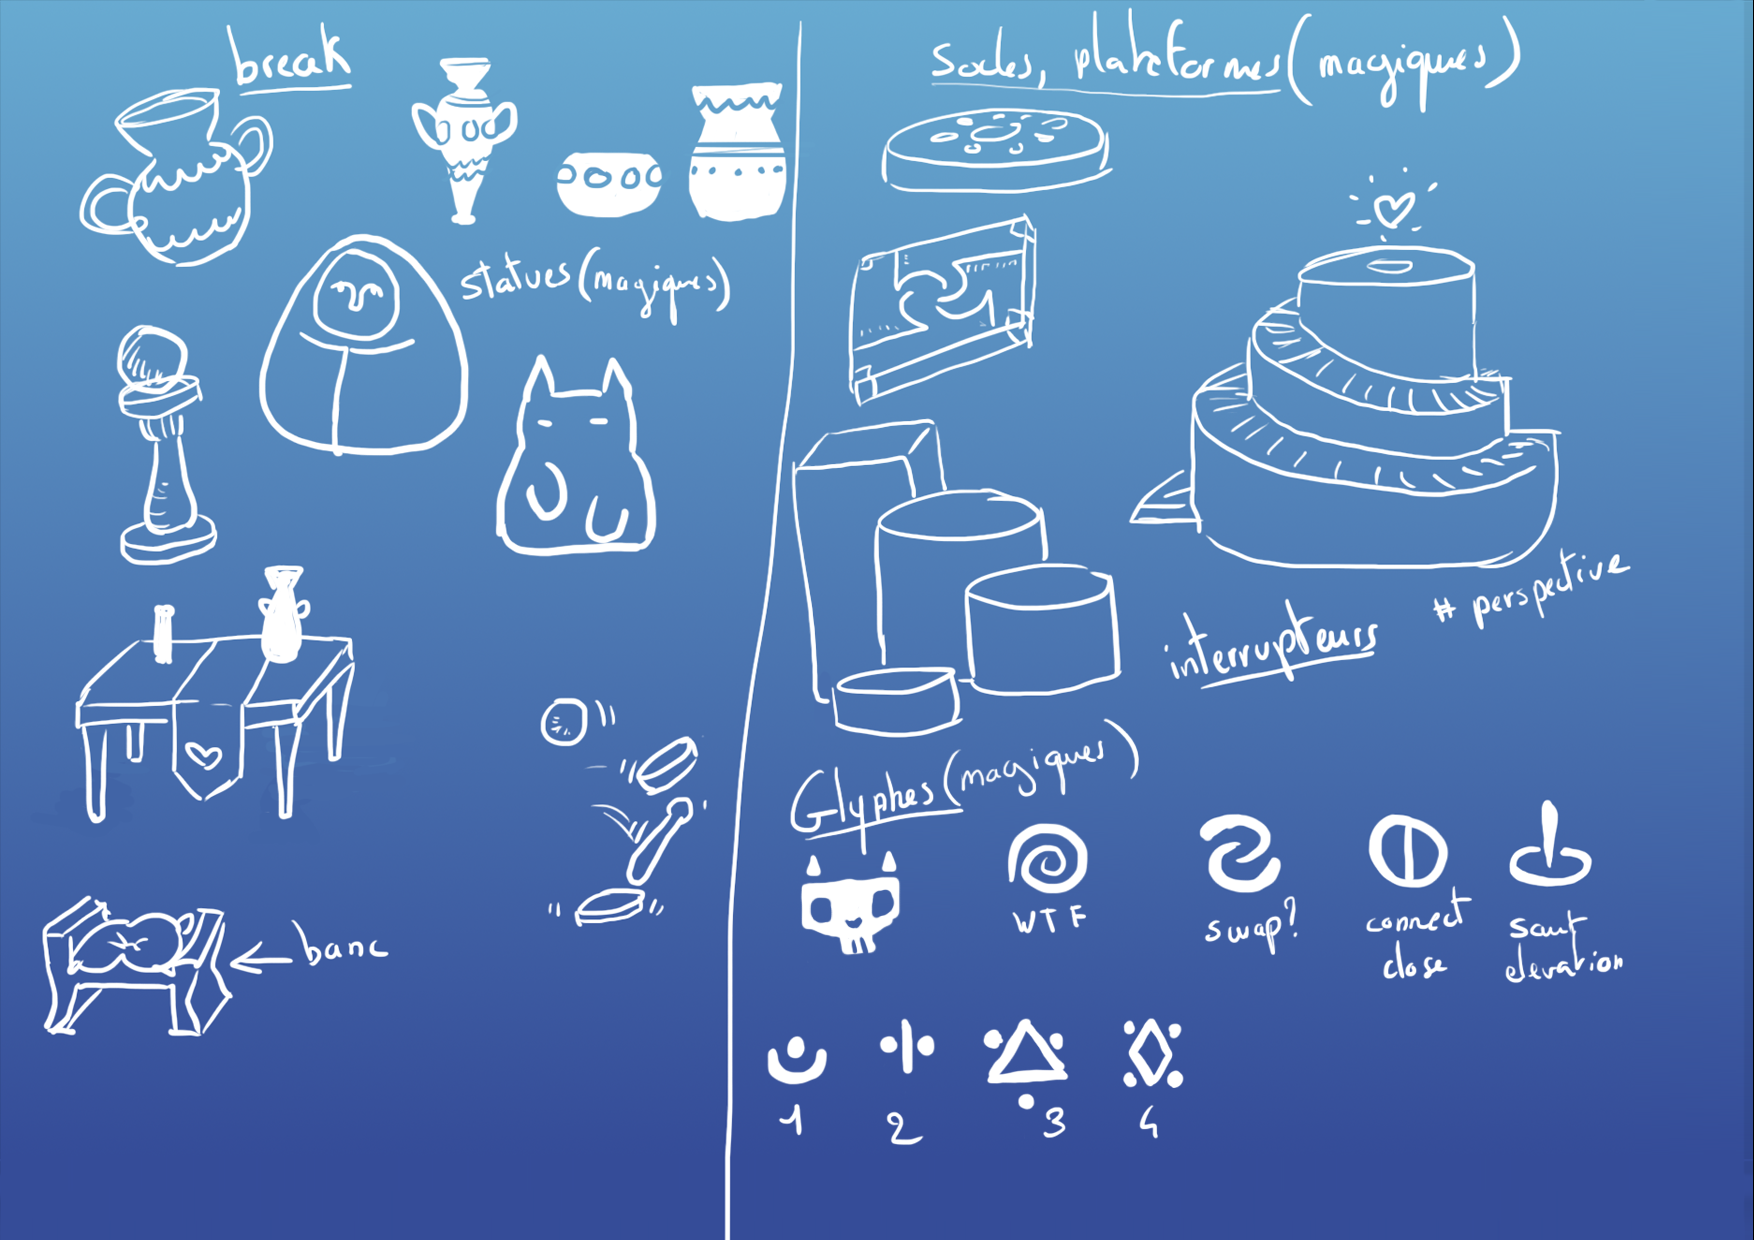 break
statues (magiques)
banc
Socles, plateformes (magiques)
# perspective
interrupteurs
Glyphes (magiques)
WTF
swap?
connect
close
saut
elevation
1
2
3
4